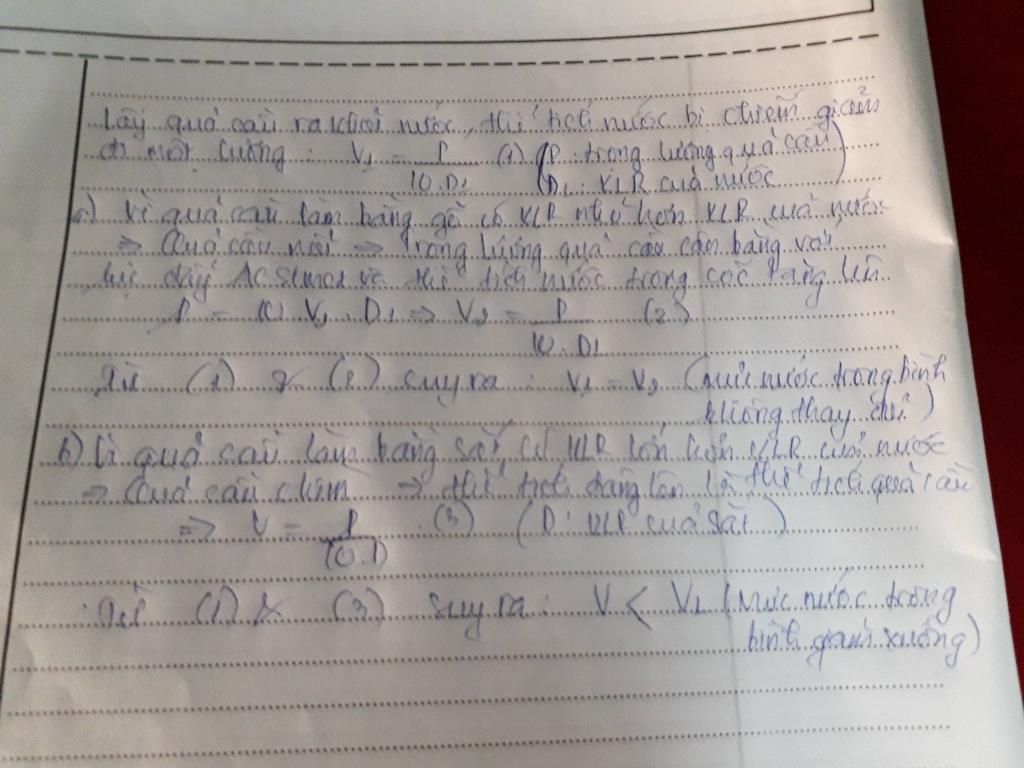 Lấy quả cầu ra khỏi nước, thể tích nước bị chiếm giảm
đi một lượng : V₁ = P / 10.D₁ (1) (P : trọng lượng quả cầu)
(D₁ : KLR của nước
a) Vì quả cầu làm bằng gỗ có KLR nhỏ hơn KLR của nước
⇒ Quả cầu nổi ⇒ trọng lượng quả cầu cân bằng với
lực đẩy Acsimet và thể tích nước trong cốc tăng lên
P = 10.V₂.D₁ ⇒ V₂ = P / 10.D₁ (2)
Từ (1) & (2) suy ra : V₁ = V₂ (Mực nước trong bình
không thay đổi)
b) Vì quả cầu làm bằng sắt có KLR lớn hơn KLR của nước
⇒ Quả cầu chìm ⇒ thể tích dâng lên là thể tích quả cầu
⇒ V = P / 10.D (3) (D : KLR của sắt)
Từ (1) & (3) suy ra : V < V₁ (Mực nước trong
bình giảm xuống)